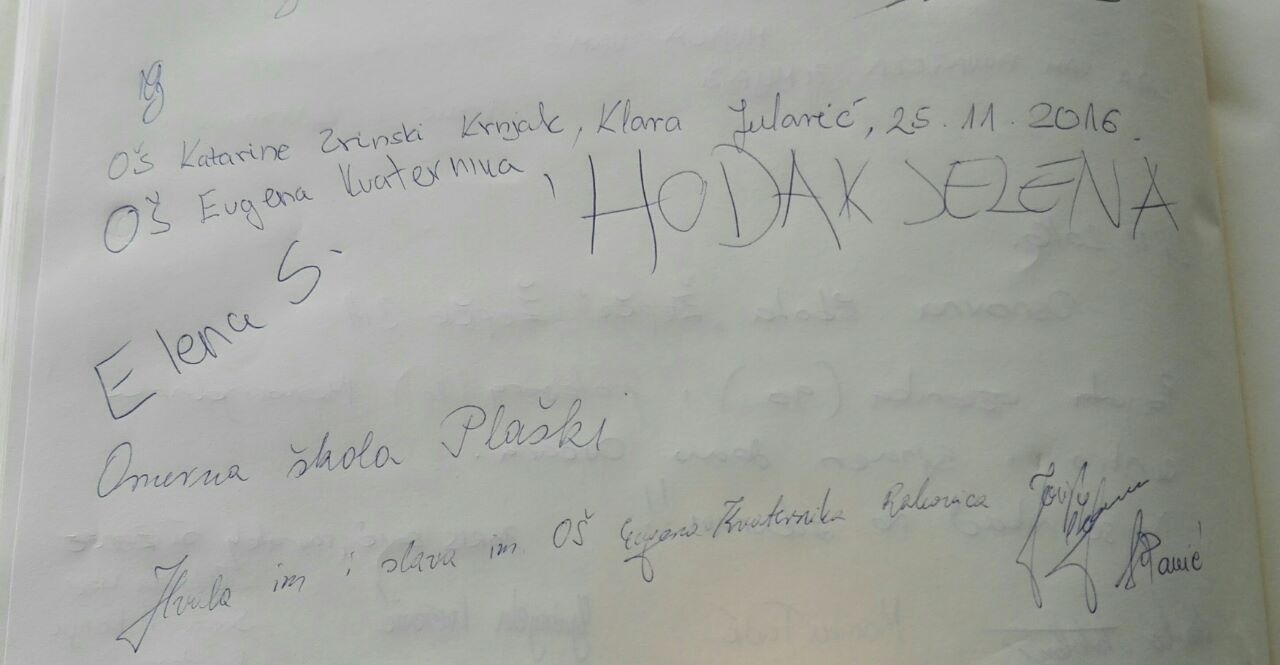 OŠ Katarine Zrinski Krnjak, Klara Jularić, 25.11.2016.
OŠ Eugena Kvaternika, HODAK JELENA
Elena S.
Osnovna škola Plaški
Hvala im i slava im OŠ Eugena Kvaternika Rakovica